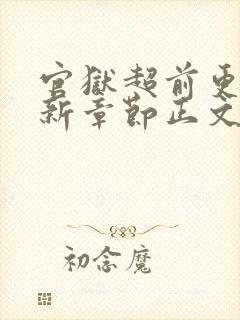 官獄超前更
新章節正文
初念魔